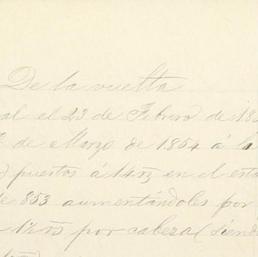 De la vuelta
al el 23 de Febrero de 18
de Marzo de 1854 á la
puestos á 14 en el est
853 aumentándoles por
por cabeza (siend